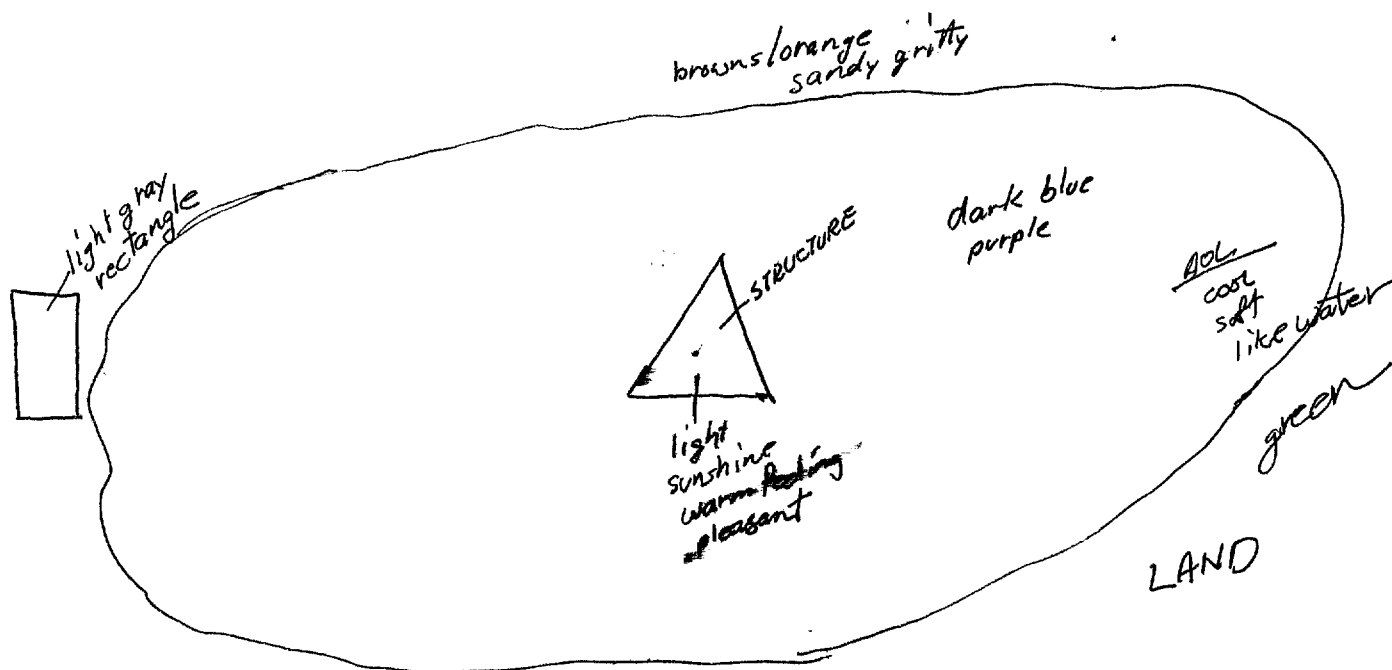 browns/orange
sandy gritty
light gray
rectangle
STRUCTURE
dark blue
purple
AOL
cool
soft
like water
light
sunshine
warm feeling
pleasant
green
LAND